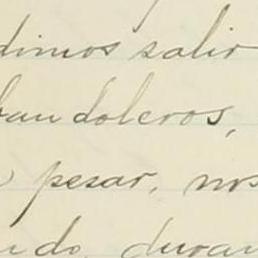 dimos salir
bandoleros,
pesar, nos
ndo, duran